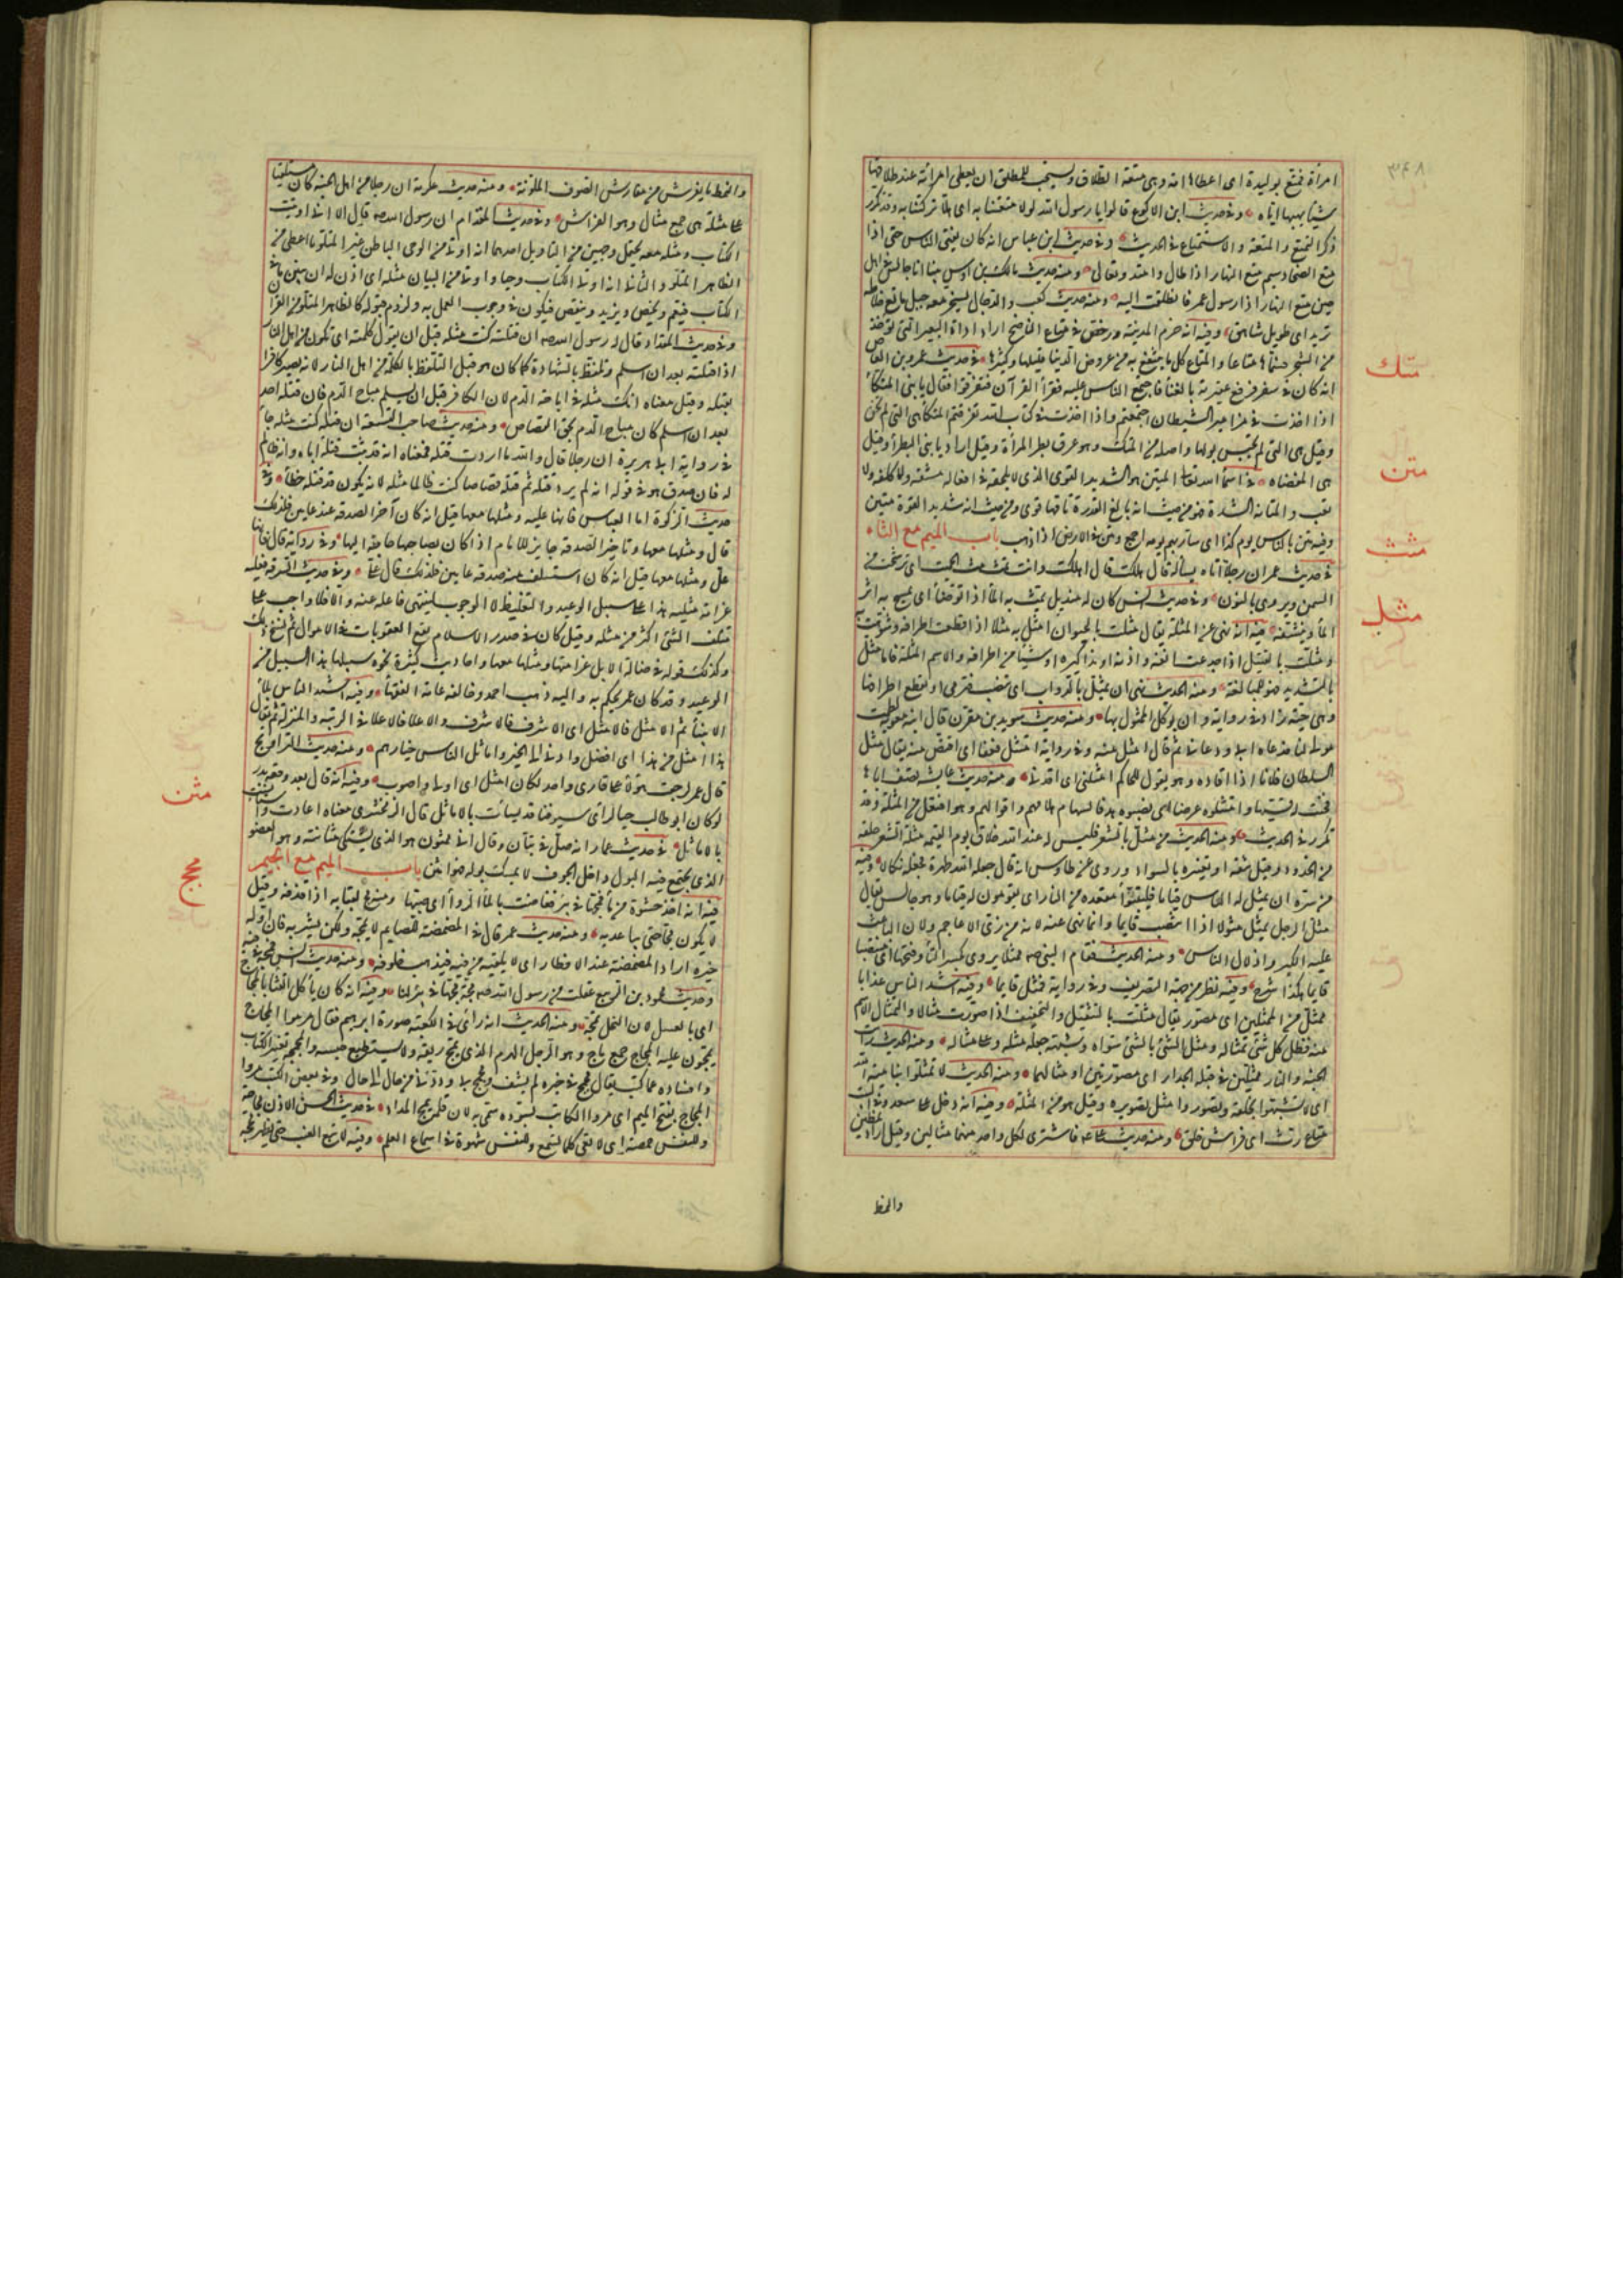 ٣٤٨
امرأة فمتع بوليدة اى اعطاها امة وهى متعة الطلاق ويستحب للمطلق ان يعطى امرأته عند طلاقها
شيئا يهبها اياه وفى حديث ابن الاكوع قالوا يا رسول الله لولا متعتنا به اى هلا تركتنا به وقد تكرر
ذكر التمتع والمتعة والاستمتاع فى الحديث وفى حديث ابن عباس انه كان يفتى الناس حتى اذا
متع الضحى وسم متع النهار اذا طال وامتد وتعالى ومنه حديث مالك بن اوس بينا انا جالس فى اهلى
حين متع النهار اذا رسول عمر فانطلقت اليه ومنه حديث كعب والدجال يسخر معه جبل ماتع خلاطه
ثريد اى طويل شاهق وفيه انه حرم المدينة ورخص فى متاع الناضح اراد اداة البعير التى تؤخذ
من الشجر فسماها متاعا والمتاع كل ما ينتفع به من عروض الدنيا قليلها وكثيرها فى حديث عمرو بن العاص
انه كان فى سفر فرفع عقيرته بالغناء فاجتمع الناس عليه فقرأ القرآن فتفرقوا فقال يا بنى المتكاء
اذا اخذت فى مزامير الشيطان اجتمعتم واذا اخذت فى كتاب الله تفرقتم المتكأ هى التى لم تختن
وقيل هى التى لم تحبس بولها واصله من المتك وهو عرق بظر المرأة وقيل اراد يا بنى البظراء وقيل
هى المفضاة فى اسماء الله تعالى المتين هو الشديد القوى الذى لا يلحقه فى افعاله مشقة ولا كلفة ولا
تعب والمتانة الشدة فهو من حيث انه بالغ القدرة تامها قوى ومن حيث انه شديد القوة متين
وفيه متن بالناس يوم كذا اى سار بهم يومه اجمع ومتن فى الارض اذا ذهب باب الميم مع الثاء
فى حديث عمر ان رجلا اتاه يسأله قال هلكت قال اهلكت وانت تمث مث الحميت اى ترشح من
السمن ويروى بالنون وفى حديث انس كان له منديل يمث به الماء اذا توضأ اى يمسح به اثر
الماء وينشفه فيه انه نهى عن المثلة يقال مثلت بالحيوان امثل به مثلا اذا قطعت اطرافه وشوهت به
ومثلت بالقتيل اذا جدعت انفه واذنه او مذاكيره او شيئا من اطرافه والاسم المثلة فاما مثل
بالتشديد فهو للمبالغة ومنه الحديث نهى ان يمثل بالدواب اى تنصب فترمى او تقطع اطرافها
وهى حية زاد فى رواية وان يؤكل الممثول بها ومنه حديث سويد بن مقرن قال ابنه معوية لطمت
مولى لنا فدعاه ابى ودعانى ثم قال امثل منه وفى رواية امتثل فعفا اى اقتص منه يقال مثل
السلطان فلانا اذا اقاده وهو يقول للحاكم امثلنى اى اقدنى ومنه حديث عايشة تصف اباها
فحنت له قسيها وامتثلوه غرضا اى نصبوه هدفا لسهام ملامهم واقوالهم وهو افتعل من المثلة وقد
تكرر فى الحديث ومنه الحديث من مثل بالشعر فليس له عند الله خلاق يوم القيمة مثلة الشعر حلقه
من الخدود وقيل نتفه او تغييره بالسواد وروى عن طاوس انه قال جعله الله طهرة فجعله نكالا وفيه
من سره ان يمثل له الناس قياما فليتبوأ مقعده من النار اى يقومون له قياما وهو جالس يقال
مثل الرجل يمثل مثولا اذا انتصب قايما وانما نهى عنه لانه من زى الاعاجم ولان الباعث
عليه الكبر واذلال الناس ومنه الحديث فقام النبى صه ممثلا يروى بكسر الثاء وفتحها اى منتصبا
قايما هكذا شرح وفيه نظر من جهة التصريف وفى رواية فمثل قايما وفيه اشد الناس عذابا
ممثل من الممثلين اى مصور يقال مثلت بالتثقيل والتخفيف اذا صورت مثالا والتمثال الاسم
منه فظل كل شئ تمثاله ومثل الشئ بالشئ سواه وشبهه جعله مثله وعلى مثاله ومنه الحديث رأيت
الجنة والنار ممثلتين فى قبلة الجدار اى مصورتين او مثالهما ومنه الحديث لا تمثلوا بنامية الله
اى لا تشبهوا بخلقه وتصوروا مثل تصويره وقيل هو من المثلة وفيه انه دخل على سعد وفى البيت
متاع رث اى فراش خلق ومنه حديث على ع م فاشترى لكل واحد منهما مثالين وقيل اراد نمطين
والنمط
متك
متن
مثث
مثل
والنمط ما يفرش من مفارش الصوف الملونة ومنه حديث عكرمة ان رجلا من اهل الجنة كان مستلقيا
على مثله هى جمع مثال وهو الفراش وفى حديث المقدام ان رسول الله صه قال الا انى اوتيت
الكتاب ومثله معه يحتمل وجهين من التأويل احدهما انه اوتى من الوحى الباطن غير المتلو ما اعطى من
الظاهر المتلو والثانى انه اوتى الكتاب وحيا واوتى من البيان مثله اى اذن له ان يبين ما فى
الكتاب فيعم ويخص ويزيد وينقص فيكون فى وجوب العمل به ولزوم قبوله كالظاهر المتلو من القرآن
وفى حديث المقداد قال له رسول الله صه ان قتلته كنت مثله قبل ان يقول كلمته اى تكون من اهل النار
اذا قتلته بعد ان اسلم وتلفظ بالشهادة كما كان هو قبل التلفظ بالكلمة من اهل النار لا انه يصير كافرا
بقتله وقيل معناه انك مثله فى اباحة الدم لان الكافر قبل ان يسلم مباح الدم فان قتله احد
بعد ان اسلم كان مباح الدم بحق القصاص ومنه حديث صاحب النسعة ان قتله كنت مثله جاء
فى رواية ابى هريرة ان رجلا قال والله ما اردت قتله فمعناه انه قد ثبت قتله اياه وانه ظالم
له فان صدق هو فى قوله انه لم يرد قتله ثم قتلته قصاصا كنت ظالما مثله لانه يكون قد قتله خطأ وفى
حديث الزكوة اما العباس فانها عليه ومثلها معها قيل انه كان آخر الصدقة عنه عامين فلذلك
قال ومثلها معها وتاخير الصدقة جايز للامام اذا كان بصاحبها حاجة اليها وفى رواية قال فانها
على ومثلها معها قيل انه كان استسلف منه صدقة عامين فلذلك قال على وفى حديث السرقة فعليه
غرامة مثليه هذا على سبيل الوعيد والتغليظ لا الوجوب لينتهى فاعله عنه والا فلا واجب على
متلف الشئ اكثر من مثله وقيل كان فى صدر الاسلام تقع العقوبات فى الاموال ثم نسخ ذلك
وكذلك قوله فى ضالة الابل غرامتها ومثلها معها واحاديث كثيرة نحوه سبيلها هذا السبيل من
الوعيد وقد كان عمر يحكم به واليه ذهب احمد وخالفه عامة الفقهاء وفيه اشد الناس بلاء
الانبياء ثم الامثل فالامثل اى الاشرف فالاشرف والاعلا فالاعلا فى الرتبة والمنزلة ثم يقال
هذا امثل من هذا اى افضل وادنى الى الخير واماثل الناس خيارهم ومنه حديث التراويح
قال عمر لو جمعت هؤلاء على قارى واحد لكان امثل اى اولى واصوب وفيه انه قال بعد وقعة بدر
لو كان ابو طالب حيا لرأى سيوفنا قد بسأت بالاماثل قال الزمخشرى معناه اعتادت واستأنست
بالاماثل فى حديث عمار انه صلى فى تبان وقال انى ممثون هو الذى يشتكى مثانته وهو العضو
الذى يجتمع فيه البول داخل الجوف لا يمسك بوله فهو امثن باب الميم مع الجيم
فيه انه اخذ حسوة من ماء فمجها فى بئر ففاضت بالماء الرواء اى صبها ومنه مج لعابه اذا قذفه وقيل
لا يكون مجا حتى يباعد به ومنه حديث عمر قال فى المضمضة للصايم لا يمجه ولكن يشربه فان اوله
خيره اراد المضمضة عند الافطار اى لا يلقيه من فيه فيذهب خلوفه ومنه حديث انس فمجه فى فيه
وحديث محمود بن الربيع عقلت من رسول الله صه مجة مجها فى بئر لنا وفيه انه كان يأكل القثاء بالمجاج
اى بالعسل لان النحل تمجه ومنه الحديث انه رأى فى الكعبة صورة ابرهيم فقال مروا المجاج
يمجمجون عليه المجاج جمع ماج وهو الرجل الهرم الذى يمج ريقه ولا يستطيع حبسه والمجمجة تغيير الكتاب
وافساده عما كتب يقال مجمج فى خبره لم يشف ومجمج بى وردنى من حال الى حال وفى بعض الكتب مروا
المجاج بفتح الميم اى مروا الكاتب يسوده سمى به لان قلمه يمج المداد فى حديث الحسن الاذن مجاجة
وللنفس حمضة اى لا تعى كل ما تسمع وللنفس شهوة فى استماع العلم وفيه لا تبع العنب حتى يظهر مججه
مثن
مجج